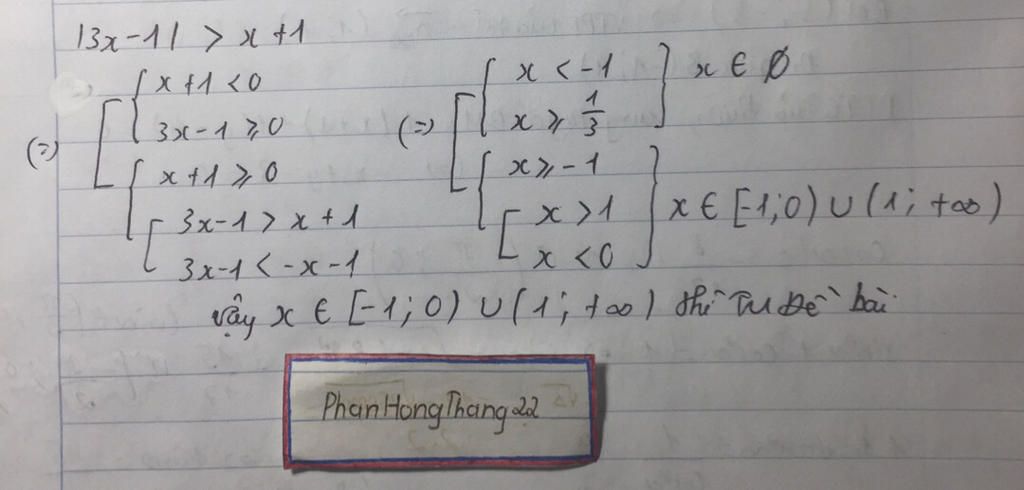 |3x-1| > x+1
(=) [ { x+1<0 (=) [ { x < -1 } x ∈ ∅
3x-1 ⩾ 0 x ⩾ 1/3
{ x+1 ⩾ 0 { x ⩾ -1 } x ∈ [-1;0) ∪ (1; +∞)
[ 3x-1 > x+1 [ x > 1
3x-1 < -x-1 x < 0
vậy x ∈ [-1; 0) ∪ (1; +∞) thì TM Đề bài.
PhanHongThang22